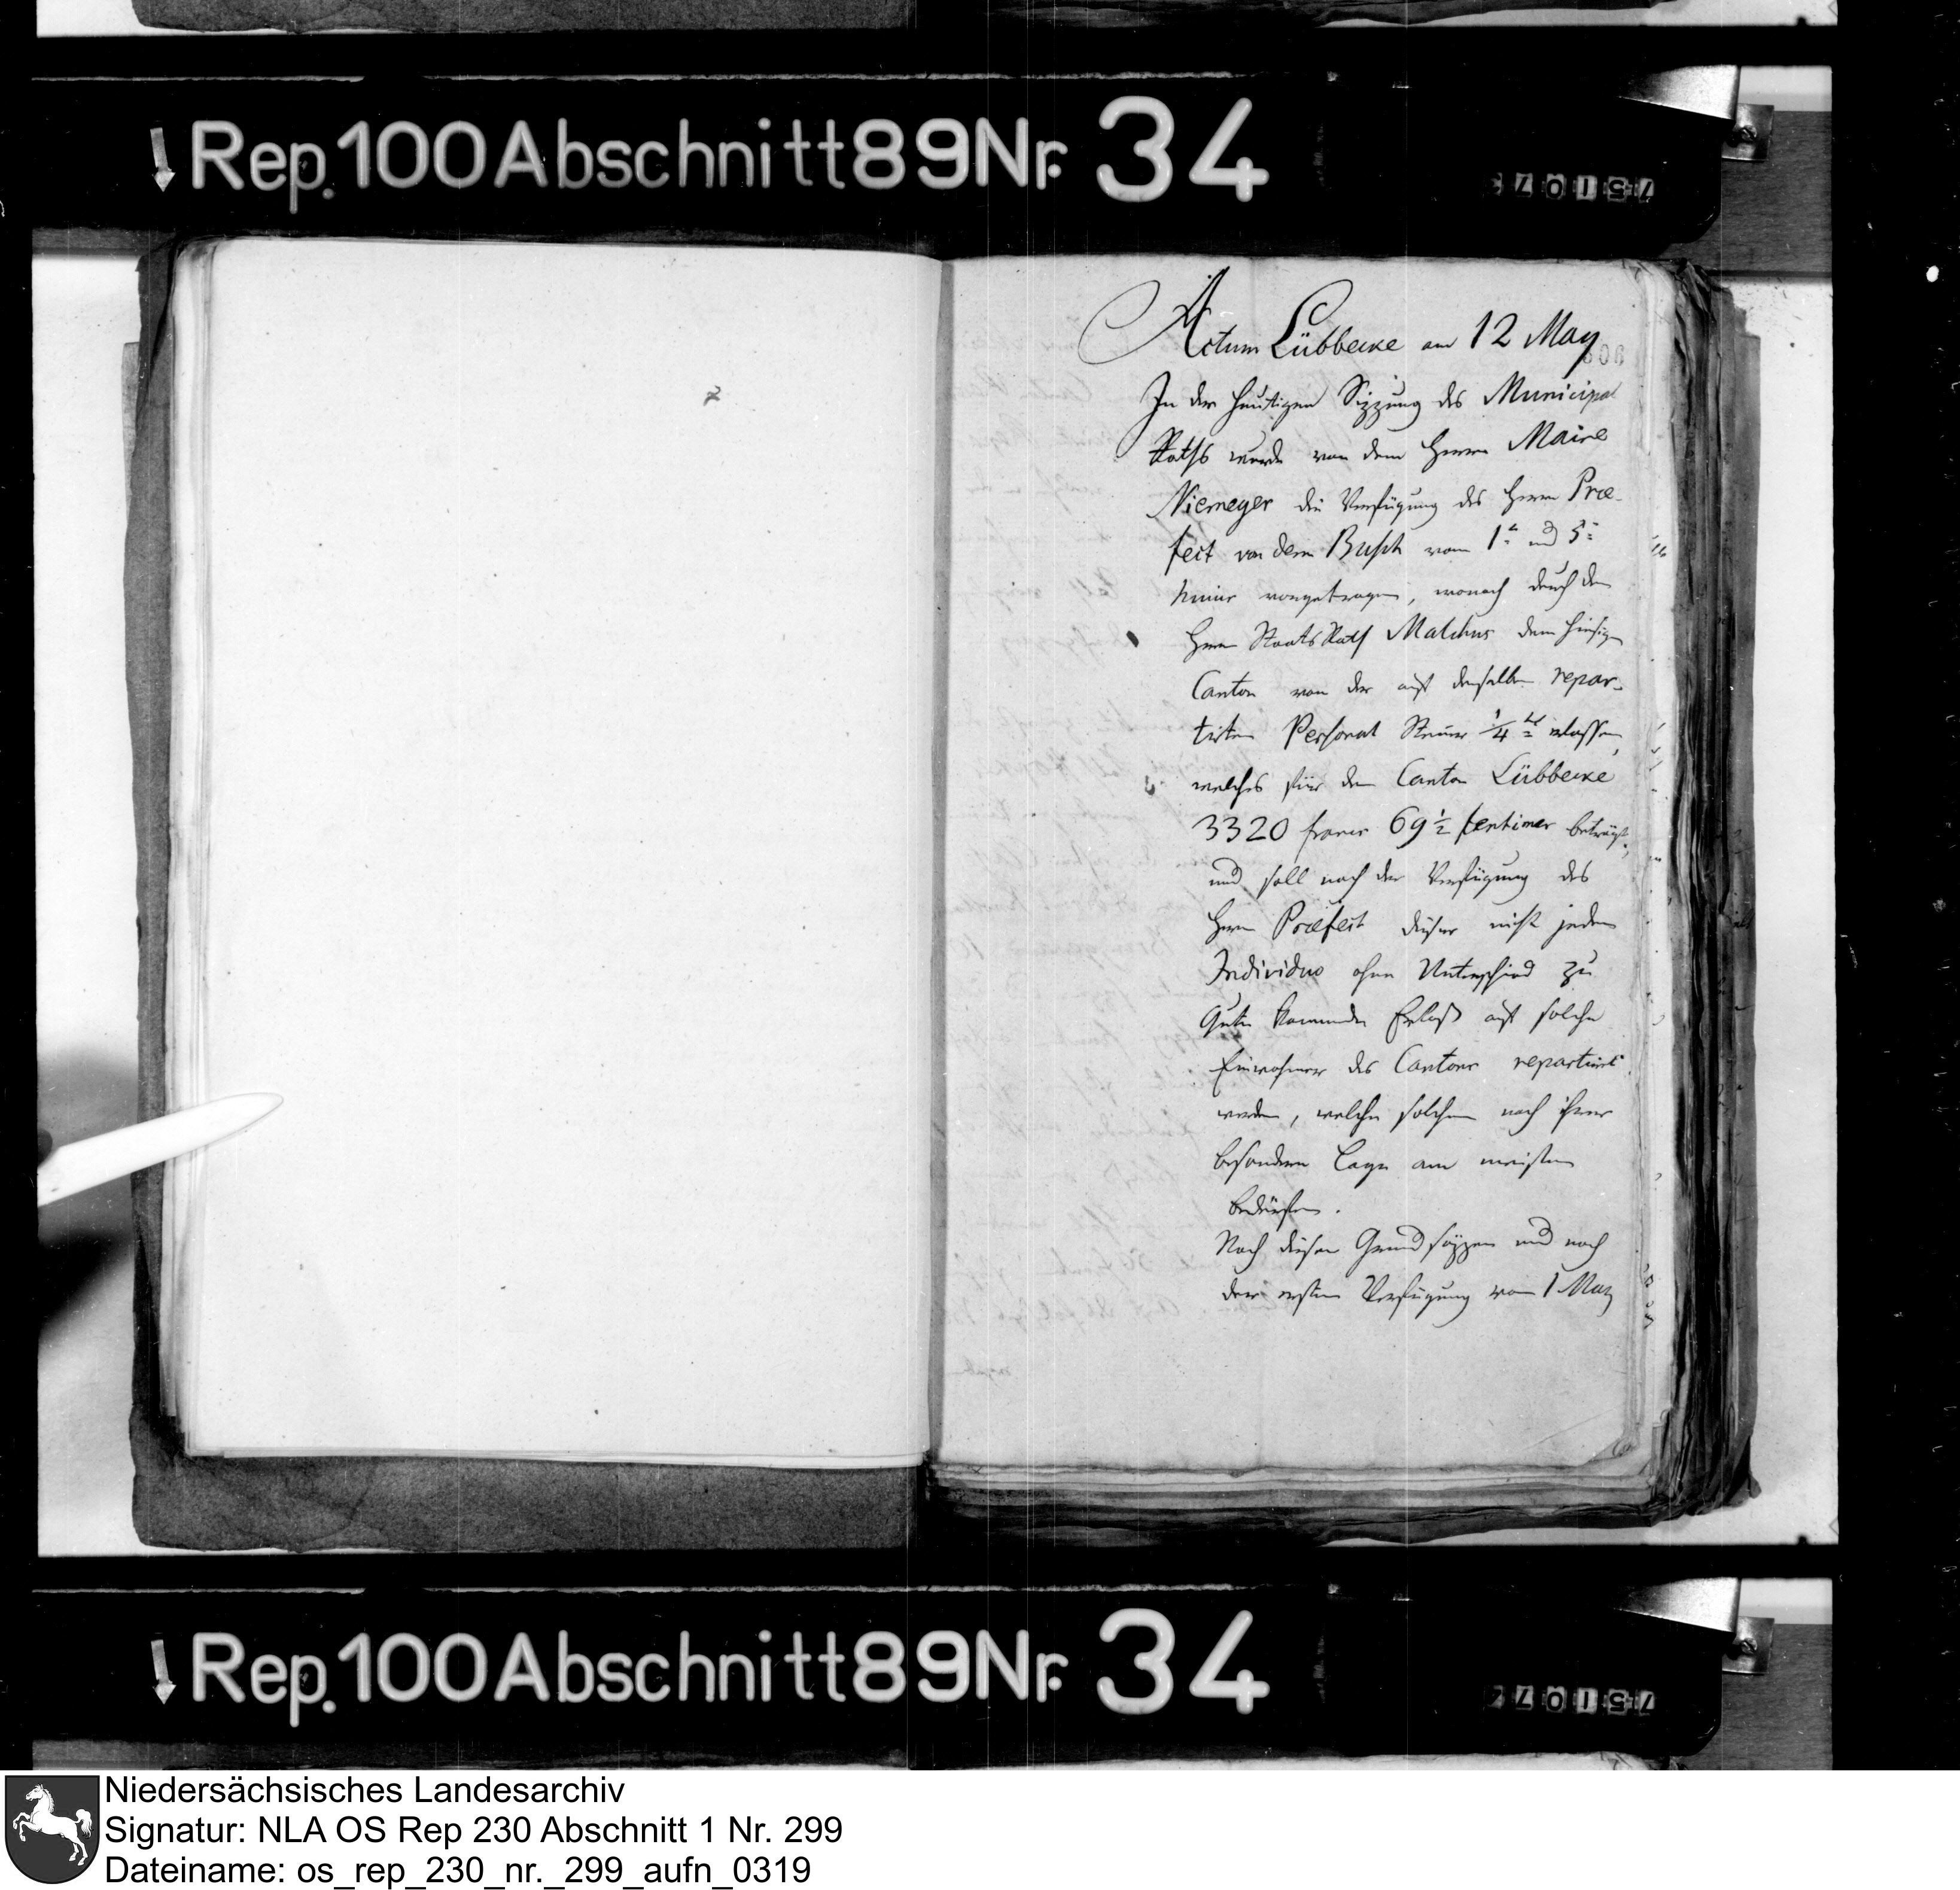 Rep. 100 Abschnitt 89 Nr. 34
Actum Lübbecke am 12 May
606
In der heutigen Sizzung des Municipal
Raths wurde von dem Herrn Maire
Niemeyer die Verfügung des Herrn Præ-
fect von dem Busch vom 1ten und 5ten
huius vorgetragen, wonach durch den
Herrn StaatsRath Malchus dem hiesigen
Canton von der auf denselben repar-
tirten Personal Steuer 1/4tel erlassen,
welches für den Canton Lübbecke
3320 francs 69 1/2 Centimes beträgt,
und soll nach der Verfügung des
Herrn Præfect dieser nicht jedem
Individuo ohne Unterschied zu
Gute kommende Erlaß auf solche
Einwohner des Cantons repartirt
werden, welche solchen nach ihrer
besondern Lage am meisten
bedürfen.
Nach diesen Grundsäzzen und nach
der ersten Verfügung vom 1 May
Rep. 100 Abschnitt 89 Nr. 34
Niedersächsisches Landesarchiv
Signatur: NLA OS Rep 230 Abschnitt 1 Nr. 299
Dateiname: os_rep_230_nr._299_aufn_0319